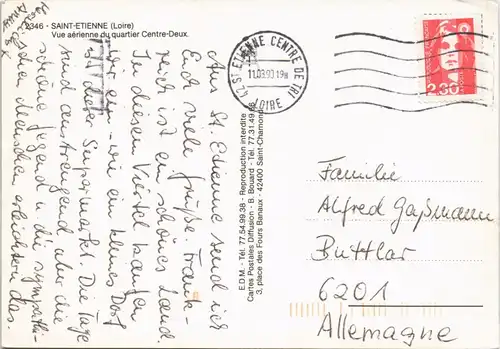 2346 - SAINT-ETIENNE (Loire)
Vue aérienne du quartier Centre-Deux.
Aus St. Etienne send ich
Euch viele Grüße. Frank-
reich ist ein schönes Land.
In diesem Viertel kaufen
wir ein – wie ein kleines Dorf
ist dieser Supermarkt. Die Tage
sind anstrengend aber die
schöne Gegend u. die sympathi-
schen Menschen erleichtern das.
E.D.M. - Tél. 77.54.99.38 - Reproduction interdite
Cartes Postales Diffusion - B. Bouard - Tél. 77.31.49.58
3, place des Fours Banaux - 42400 Saint-Chamond
42 ST ETIENNE CENTRE DE TRI
11.03.90
LOIRE
2,30
Familie
Alfred Gaßmann
Buttlar
6201
Allemagne